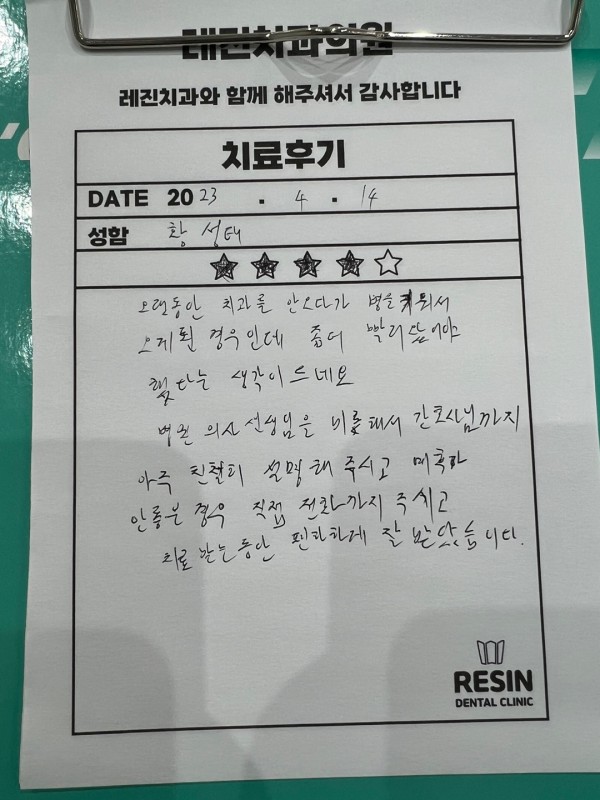 레진치과의원
레진치과와 함께 해주셔서 감사합니다
치료후기
DATE 2023 . 4 . 14
성함 황성태
오랜동안 치과를 안오다가 병을 키워서
오게된 경우인데 좀더 빨리 왔어야
했다는 생각이 드네요
병원 의사 선생님을 비롯해서 간호사님까지
아주 친절히 설명해 주시고
안좋은 경우 직접 전화까지 주시고
치료 받는동안 편하하게 잘 받았습니다.
RESIN
DENTAL CLINIC